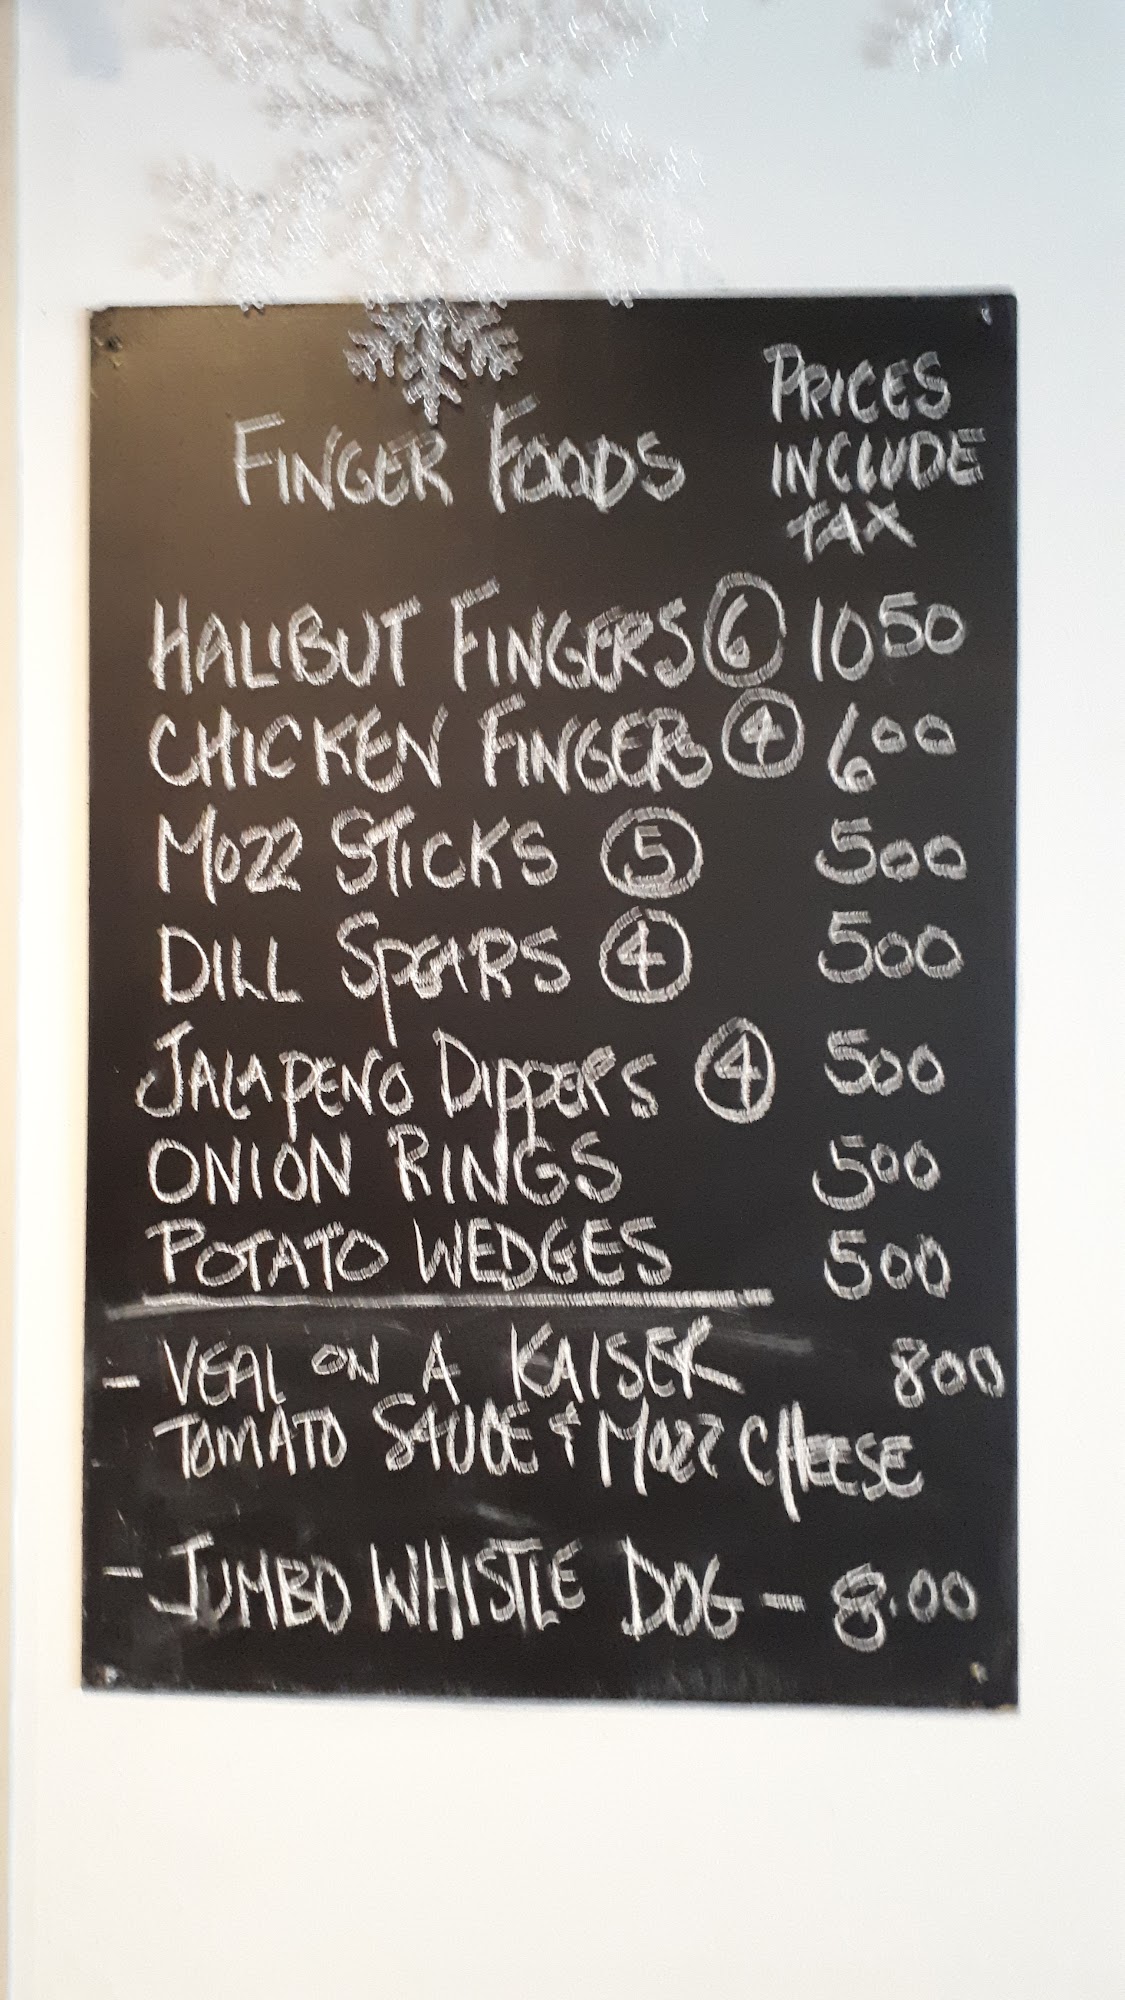 PRICES
INCLUDE
TAX
FINGER FOODS
HALIBUT FINGERS 6 10 50
CHICKEN FINGERS 4 6 00
MOZZ STICKS 5 5 00
DILL SPEARS 4 5 00
JALAPENO DIPPERS 4 5 00
ONION RINGS 5 00
POTATO WEDGES 5 00
- VEAL ON A KAISER 8 00
TOMATO SAUCE & MOZZ CHEESE
- JUMBO WHISTLE DOG - 8.00